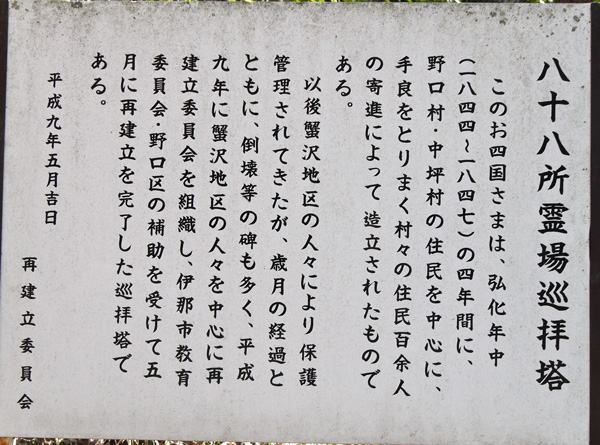 八十八所霊場巡拝塔
このお四国さまは、弘化年中
(一八四四~一八四七)の四年間に、
野口村・中坪村の住民を中心に、
手良をとりまく村々の住民百余人
の寄進によって造立されたもので
ある。
以後蟹沢地区の人々により保護
管理されてきたが、歳月の経過と
ともに、倒壊等の碑も多く、平成
九年に蟹沢地区の人々を中心に再
建立委員会を組織し、伊那市教育
委員会・野口区の補助を受けて五
月に再建立を完了した巡拝塔で
ある。
平成九年五月吉日
再建立委員会